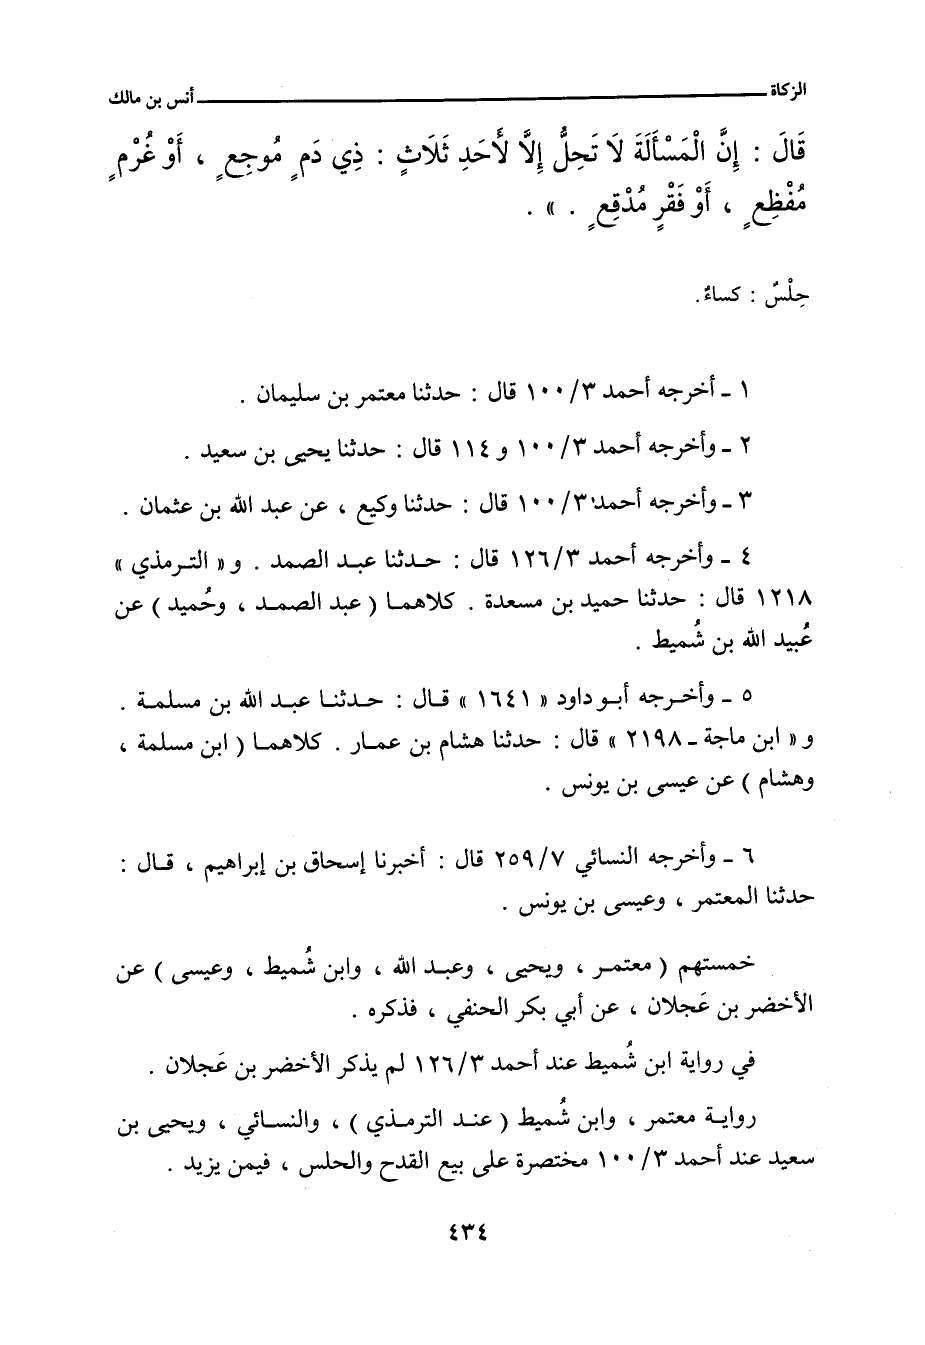 الزكاة ــــــــــ أنس بن مالك
قَالَ : إِنَّ الْمَسْأَلَةَ لَا تَحِلُّ إِلَّا لأَحَدِ ثَلَاثٍ : ذِي دَمٍ مُوجِعٍ ، أَوْ غُرْمٍ
مُفْظِعٍ ، أَوْ فَقْرٍ مُدْقِعٍ . » .
حِلْسٌ : كساءٌ.
١ ـ أخرجه أحمد ٣/ ١٠٠ قال : حدثنا معتمر بن سليمان .
٢ ـ وأخرجه أحمد ٣/ ١٠٠ و ١١٤ قال : حدثنا يحيى بن سعيد .
٣ ـ وأخرجه أحمد ٣/ ١٠٠ قال : حدثنا وكيع ، عن عبد الله بن عثمان .
٤ ـ وأخرجه أحمد ٣/ ١٢٦ قال : حدثنا عبد الصمد . و « الترمذي »
١٢١٨ قال : حدثنا حميد بن مسعدة . كلاهما ( عبد الصمد ، وحُميد ) عن
عُبيد الله بن شُميط .
٥ ـ وأخرجه أبو داود « ١٦٤١ » قال : حدثنا عبد الله بن مسلمة .
و « ابن ماجة ـ ٢١٩٨ » قال : حدثنا هشام بن عمار . كلاهما ( ابن مسلمة ،
وهشام ) عن عيسى بن يونس .
٦ ـ وأخرجه النسائي ٧/ ٢٥٩ قال : أخبرنا إسحاق بن إبراهيم ، قال :
حدثنا المعتمر ، وعيسى بن يونس .
خمستهم ( معتمر ، ويحيى ، وعبد الله ، وابن شُميط ، وعيسى ) عن
الأخضر بن عَجلان ، عن أبي بكر الحنفي ، فذكره .
في رواية ابن شُميط عند أحمد ٣/ ١٢٦ لم يذكر الأخضر بن عَجلان .
رواية معتمر ، وابن شُميط ( عند الترمذي ) ، والنسائي ، ويحيى بن
سعيد عند أحمد ٣/ ١٠٠ مختصرة على بيع القدح والحلس ، فيمن يزيد .
٤٣٤